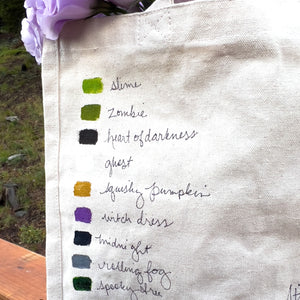 slime
zombie
heart of darkness
ghost
squishy pumpkin
witch dress
midnight
rolling fog
spooky tree